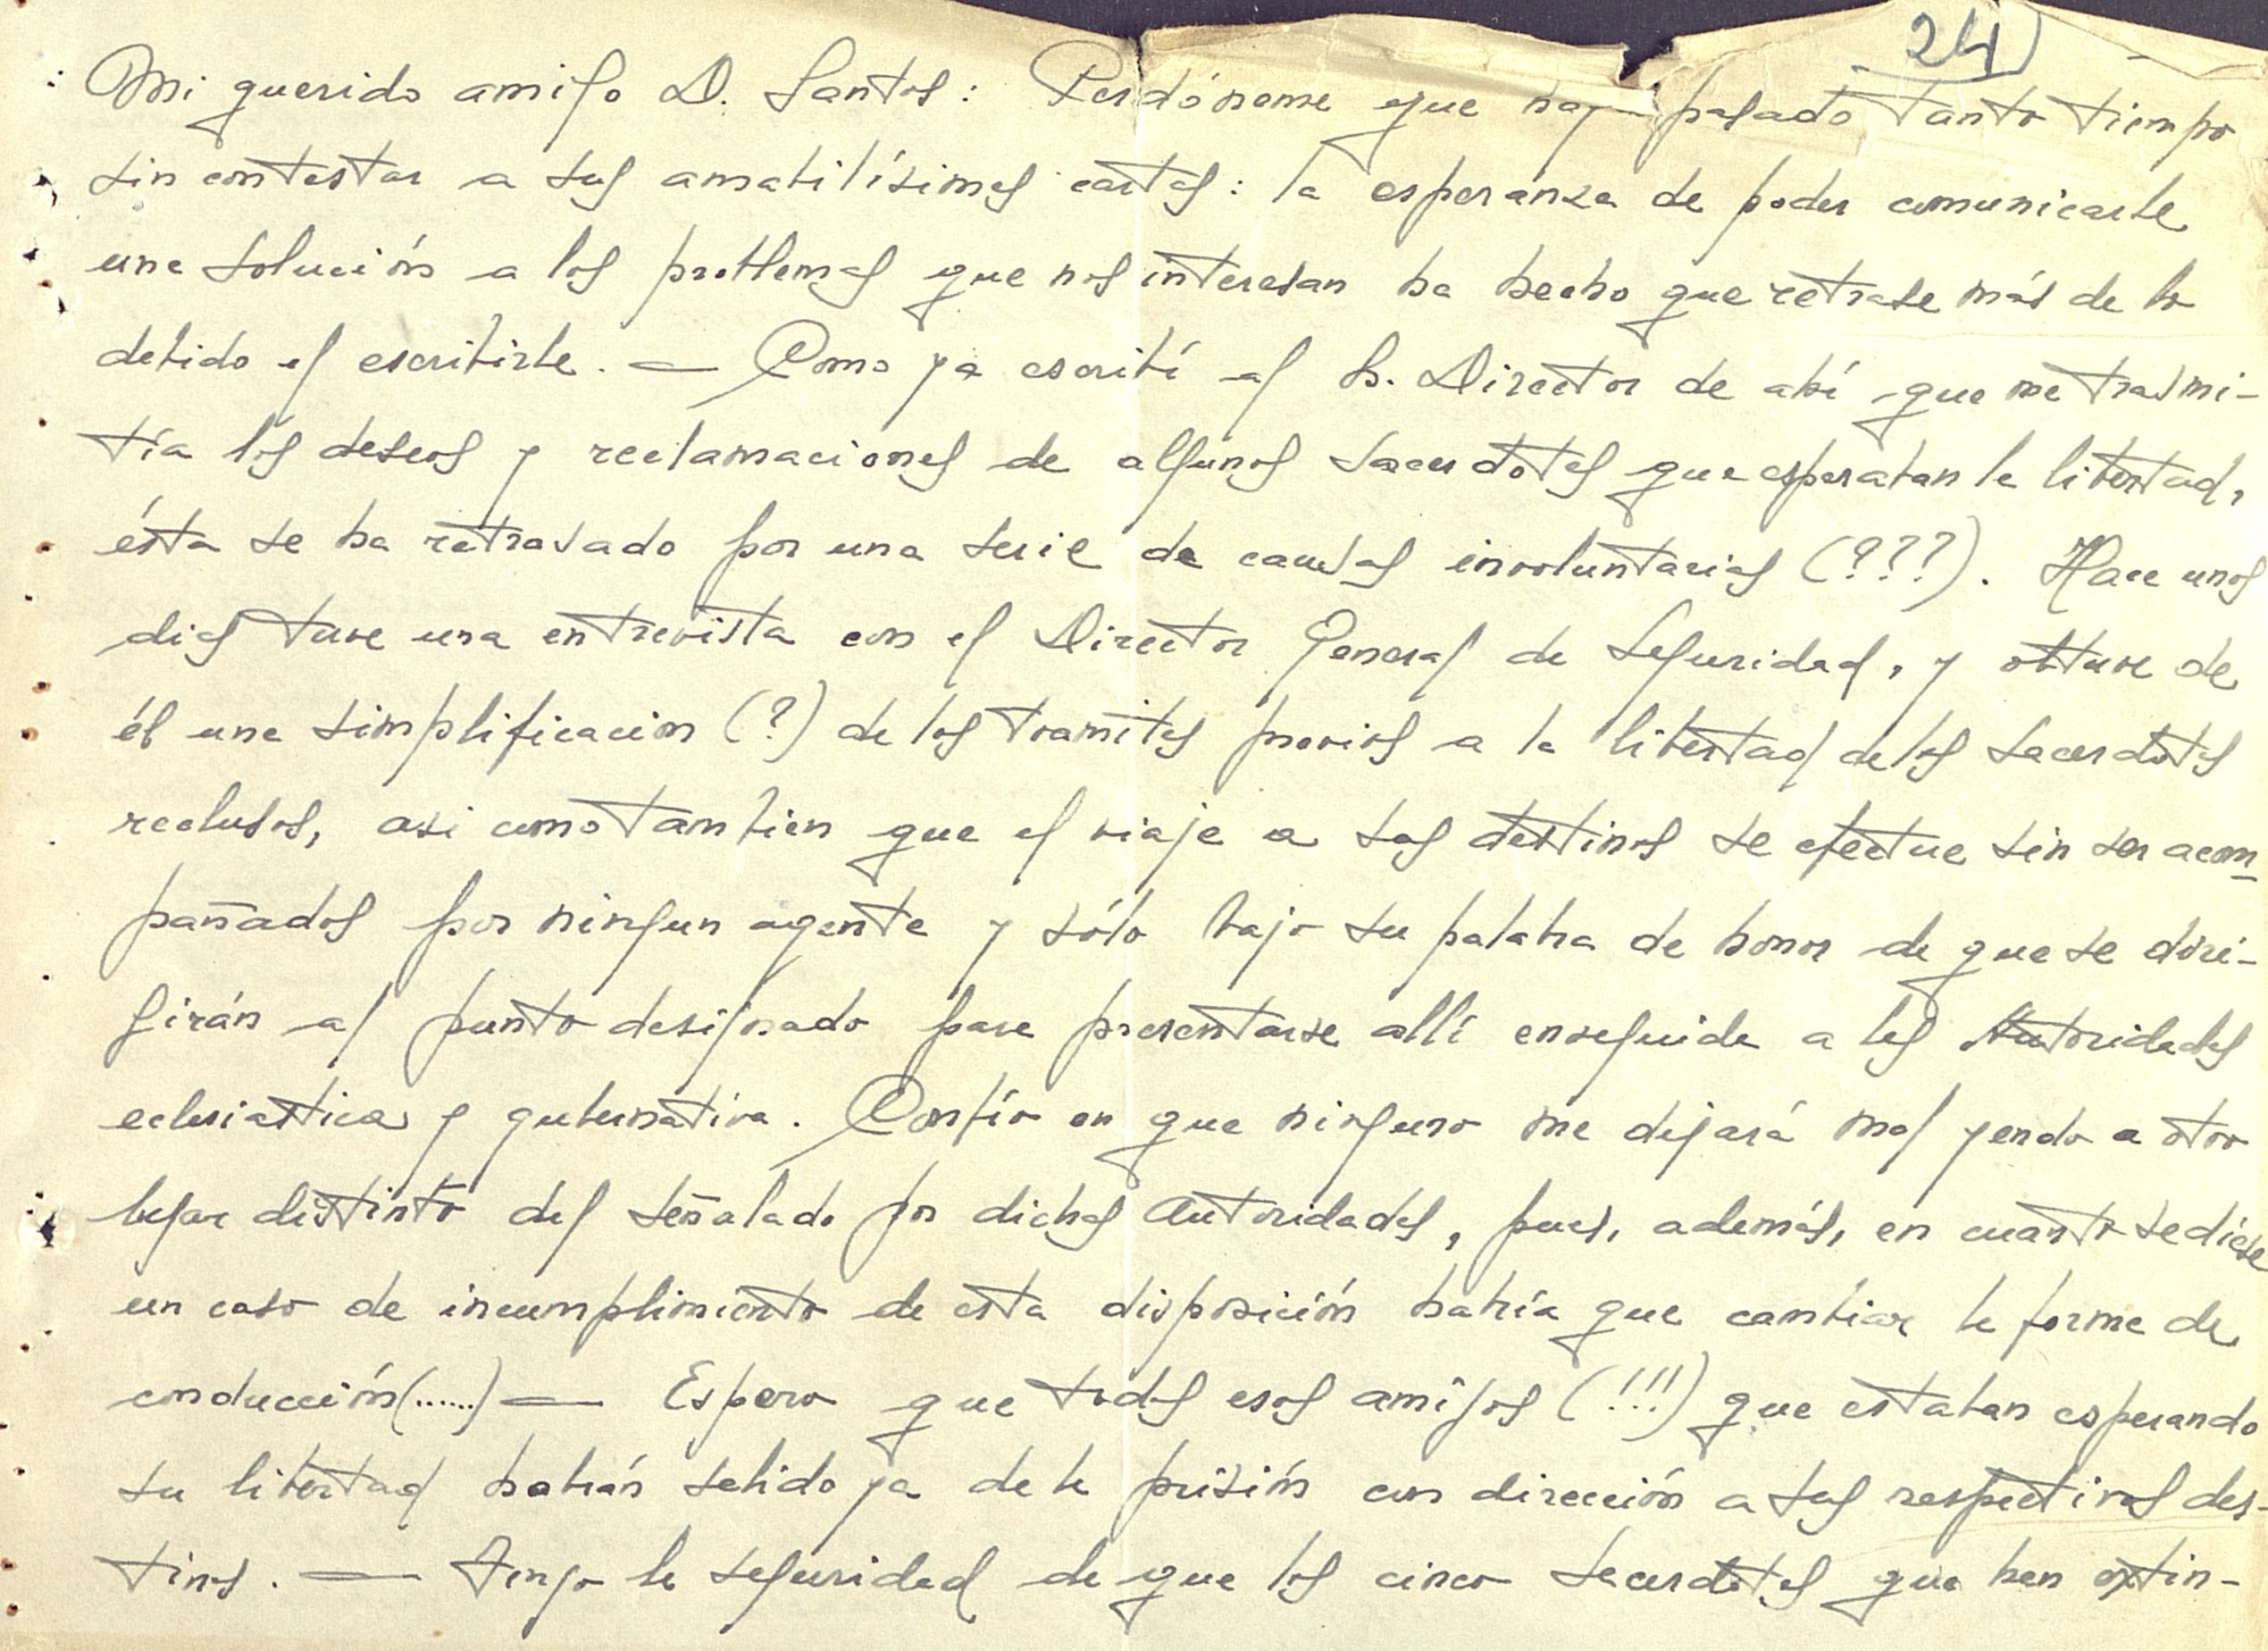 24)
Mi querido amigo D. Santos: Perdóneme que haya pasado tanto tiempo
sin contestar a sus amabilísimas cartas: la esperanza de poder comunicarle
una solución a los problemas que nos interesan ha hecho que retrase más de lo
debido el escribirle. — Como ya escribí al Sr. Director de ahí que me trasmi-
tía los deseos y reclamaciones de algunos sacerdotes que esperaban la libertad,
ésta se ha retrasado por una serie de causas involuntarias (???). Hace unos
dias tuve una entrevista con el Director General de Seguridad, y obtuve de
él una simplificacion (?) de los tramites previos a la libertad de los sacerdotes
reclusos, asi como tambien que el viaje a sus destinos se efectue sin ser acom-
pañados por ningun agente y sólo bajo su palabra de honor de que se diri-
girán al punto designado para presentarse allí enseguida a las Autoridades
eclesiastica y gubernativa. Confío en que ninguno me dejará mal yendo a otro
lugar distinto del señalado por dichas Autoridades, pues, además, en cuanto se diese
un caso de incumplimiento de esta disposición habría que cambiar la forma de
conducción(......) — Espero que todos esos amigos (!!!) que estaban esperando
su libertad habrán salido ya de la prisión con dirección a sus respectivos des-
tinos. — Tengo la seguridad de que los cinco sacerdotes que han extin-